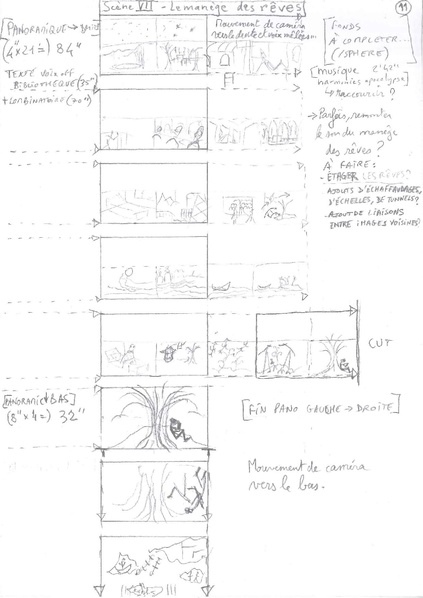 Scène VII - Le manège des rêves
11
PANORAMIQUE → droite
(4"×21=) 84"
TEXTE VOIX off
BIBLIOTHÈQUE (35")
+ COMBINATOIRE (70")
Mouvement de caméra
vers le
voix mêlées...
FI
FONDS
À COMPLETER...
(/SPHERE)
[musique 2'42"
harmonies
↳ raccourcir?
→ Parfois, remonter
le son du manège
des rêves?
À FAIRE:
- ÉTAGER LES RÊVES?
AJOUTS D'ÉCHAFFAUDAGES,
D'ÉCHELLES, DE TUNNELS?
- AJOUT DE LIAISONS
ENTRE IMAGES VOISINES?
CUT
[PANORAMIQUE BAS]
(8"×4=) 32"
[FIN PANO GAUCHE → DROITE]
Mouvement de caméra
vers le bas.